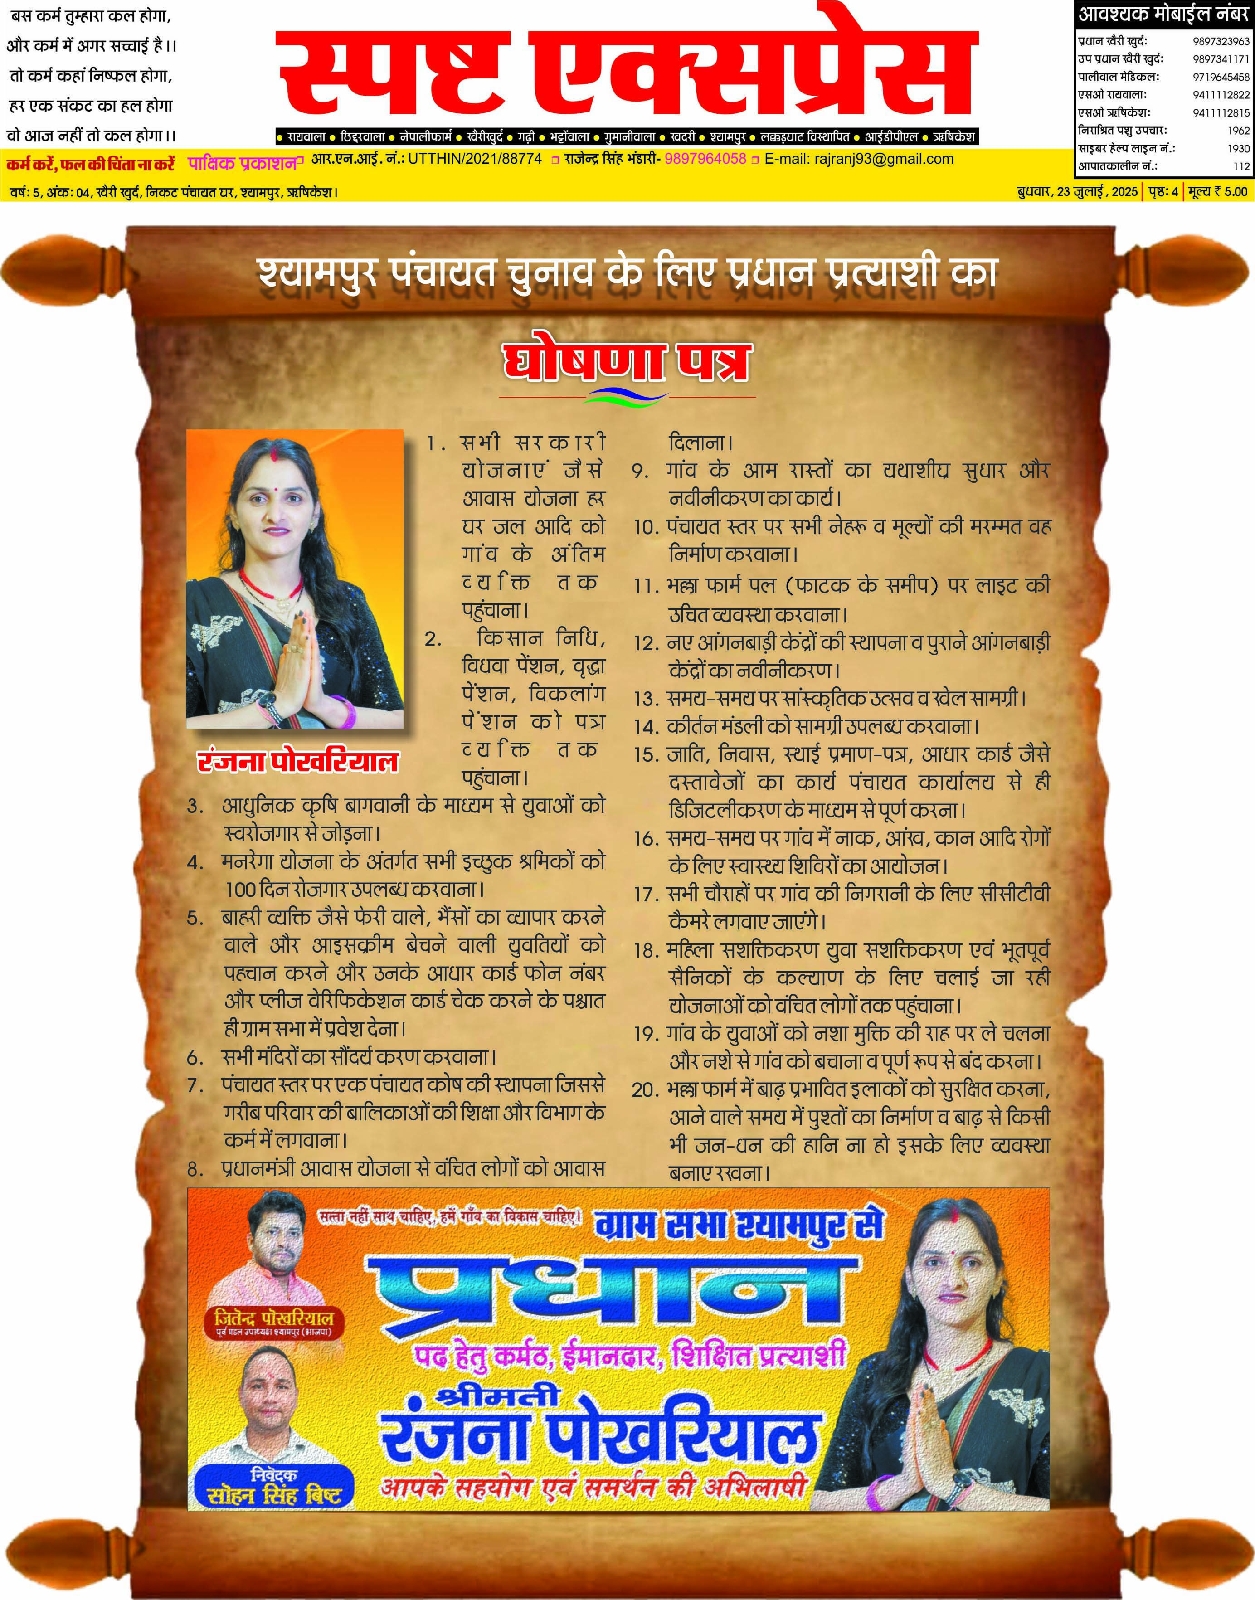 बस कर्म तुम्हारा कल होगा,
और कर्म में अगर सच्चाई है।।
तो कर्म कहां निष्फल होगा,
हर एक संकट का हल होगा
वो आज नहीं तो कल होगा।।
स्पष्ट एक्सप्रेस
• रायवाला • छिद्दरवाला • नेपालीफार्म • खैरीखुर्द • गढ़ी • भट्टोंवाला • गुमानीवाला • खदरी • श्यामपुर • लक्कड़घाट विस्थापित • आईडीपीएल • ऋषिकेश
आवश्यक मोबाईल नंबर
प्रधान खैरी खुर्दः 9897323963
उप प्रधान खैरी खुर्दः 9897341171
पालीवाल मेडिकलः 9719645458
एसओ रायवालाः 9411112822
एसओ ऋषिकेशः 9411112815
निराश्रित पशु उपचारः 1962
साइबर हेल्प लाइन नं.: 1930
आपातकालीन नं.: 112
कर्म करें, फल की चिंता ना करें पाक्षिक प्रकाशन आर.एन.आई. नं.: UTTHIN/2021/88774 राजेन्द्र सिंह भंडारी- 9897964058 E-mail: rajranj93@gmail.com
वर्षः 5, अंकः 04, खैरी खुर्द, निकट पंचायत घर, श्यामपुर, ऋषिकेश। बुधवार, 23 जुलाई, 2025 | पृष्ठः 4 | मूल्य ₹ 5.00
श्यामपुर पंचायत चुनाव के लिए प्रधान प्रत्याशी का
घोषणा पत्र
रंजना पोखरियाल
1. सभी सरकारी
योजनाएं जैसे
आवास योजना हर
घर जल आदि को
गांव के अंतिम
व्यक्ति तक
पहुंचाना।
2. किसान निधि,
विधवा पेंशन, वृद्धा
पेंशन, विकलांग
पेंशन को पत्र
व्यक्ति तक
पहुंचाना।
3. आधुनिक कृषि बागवानी के माध्यम से युवाओं को
स्वरोजगार से जोड़ना।
4. मनरेगा योजना के अंतर्गत सभी इच्छुक श्रमिकों को
100 दिन रोजगार उपलब्ध करवाना।
5. बाहरी व्यक्ति जैसे फेरी वाले, भैंसों का व्यापार करने
वाले और आइसक्रीम बेचने वाली युवतियों को
पहचान करने और उनके आधार कार्ड फोन नंबर
और प्लीज वेरिफिकेशन कार्ड चेक करने के पश्चात
ही ग्राम सभा में प्रवेश देना।
6. सभी मंदिरों का सौंदर्य करण करवाना।
7. पंचायत स्तर पर एक पंचायत कोष की स्थापना जिससे
गरीब परिवार की बालिकाओं की शिक्षा और विभाग के
कर्म में लगवाना।
8. प्रधानमंत्री आवास योजना से वंचित लोगों को आवास
दिलाना।
9. गांव के आम रास्तों का यथाशीघ्र सुधार और
नवीनीकरण का कार्य।
10. पंचायत स्तर पर सभी नेहरू व मूल्यों की मरम्मत वह
निर्माण करवाना।
11. भल्ला फार्म पल (फाटक के समीप) पर लाइट की
उचित व्यवस्था करवाना।
12. नए आंगनबाड़ी केंद्रों की स्थापना व पुराने आंगनबाड़ी
केंद्रों का नवीनीकरण।
13. समय-समय पर सांस्कृतिक उत्सव व खेल सामग्री।
14. कीर्तन मंडली को सामग्री उपलब्ध करवाना।
15. जाति, निवास, स्थाई प्रमाण-पत्र, आधार कार्ड जैसे
दस्तावेजों का कार्य पंचायत कार्यालय से ही
डिजिटलीकरण के माध्यम से पूर्ण करना।
16. समय-समय पर गांव में नाक, आंख, कान आदि रोगों
के लिए स्वास्थ्य शिविरों का आयोजन।
17. सभी चौराहों पर गांव की निगरानी के लिए सीसीटीवी
कैमरे लगवाए जाएंगे।
18. महिला सशक्तिकरण युवा सशक्तिकरण एवं भूतपूर्व
सैनिकों के कल्याण के लिए चलाई जा रही
योजनाओं को वंचित लोगों तक पहुंचाना।
19. गांव के युवाओं को नशा मुक्ति की राह पर ले चलना
और नशे से गांव को बचाना व पूर्ण रूप से बंद करना।
20. भल्ला फार्म में बाढ़ प्रभावित इलाकों को सुरक्षित करना,
आने वाले समय में पुश्तों का निर्माण व बाढ़ से किसी
भी जन-धन की हानि ना हो इसके लिए व्यवस्था
बनाए रखना।
सत्ता नहीं साथ चाहिए, हमें गाँव का विकास चाहिए।
ग्राम सभा श्यामपुर से
प्रधान
जितेन्द्र पोखरियाल
पूर्व मंडल उपाध्यक्ष श्यामपुर (भाजपा)
पद हेतु कर्मठ, ईमानदार, शिक्षित प्रत्याशी
श्रीमती
रंजना पोखरियाल
निवेदक
सोहन सिंह बिष्ट
आपके सहयोग एवं समर्थन की अभिलाषी